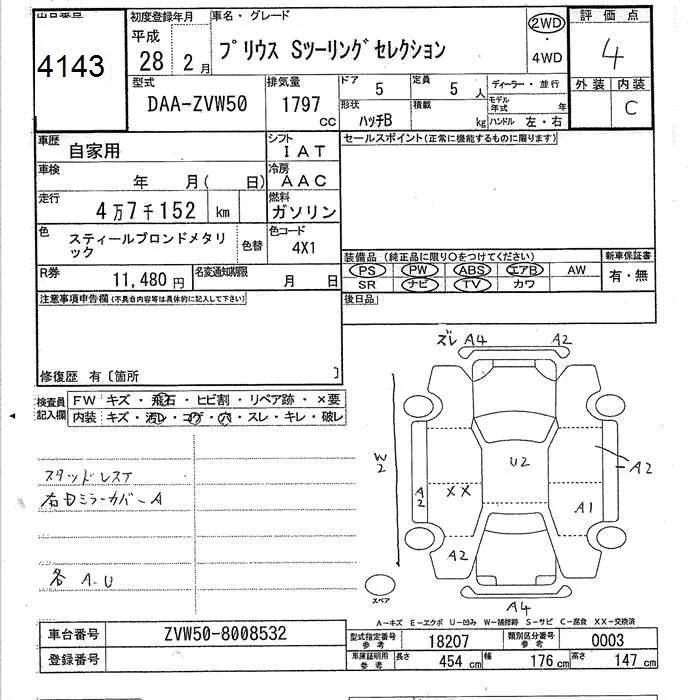 出品番号
4143
初度登録年月
平成
28 2月
車名・グレード
プリウス Sツーリングセレクション
2WD
・
4WD
評価点
4
外装 内装
C
型式
DAA-ZVW50
排気量
1797
cc
ドア 5
定員 5 人
形状 ハッチB
積載 kg
ディーラー・並行
モデル年式 年
ハンドル 左・右
車歴 自家用
シフト IAT
車検 年 月( 日)
冷房 AAC
走行 4万7千152 km
燃料 ガソリン
色 スティールブロンドメタリック
色替
色コード 4X1
R券 11,480円
名変通知期限 月 日
セールスポイント(正常に機能するものに限ります)
装備品(純正品に限り○をつけてください)
PS PW ABS エアB AW
SR ナビ TV カワ
新車保証書
有・無
後日品
注意事項申告欄(不具合内容等は具体的に記入して下さい)
修復歴 有〔箇所 〕
検査員記入欄
FW キズ・飛石・ヒビ割・リペア跡・×要
内装 キズ・汚レ・コゲ・穴・スレ・キレ・破レ
スタッドレス了
右ドミラーカバーA
各 A.U
ズレ A4 A2
W2
U2
A2
A2
XX
A1
A2
A4
スペア
A-キズ E-エクボ U-凹み W-補修跡 S-サビ C-腐食 XX-交換済
車台番号 ZVW50-8008532
登録番号
型式指定番号参考 18207
類別区分番号参考 0003
車庫証明用参考
長さ 454 cm
幅 176 cm
高さ 147 cm